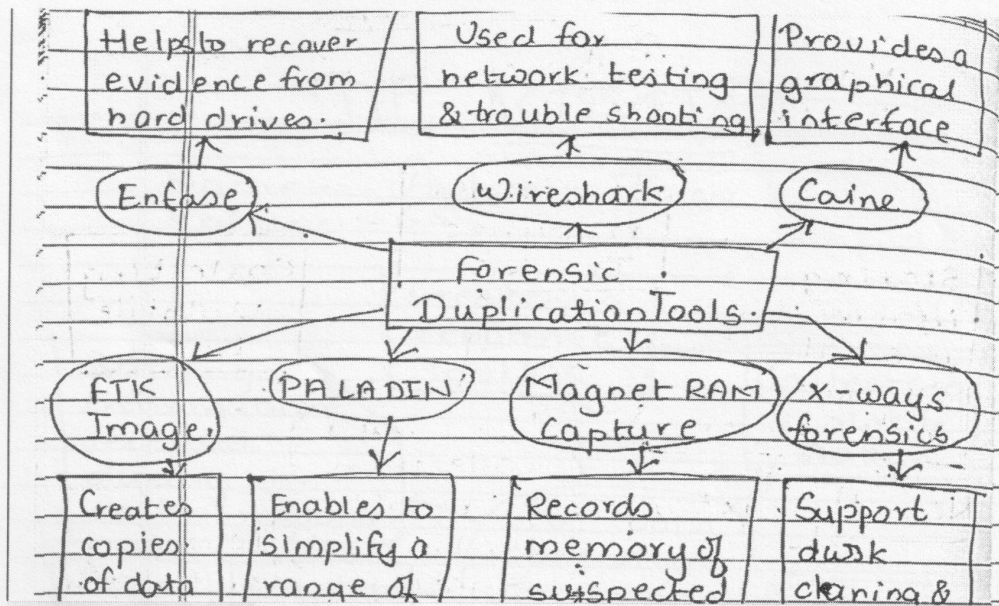 Helps to recover
evidence from
hard drives.
Used for
network testing
& trouble shooting
Provides a
graphical
interface
Enfase
Wireshark
Caine
Forensic
Duplication Tools.
FTK
Image.
PALADIN
Magnet RAM
Capture
X-ways
forensics
Creates
copies
of data
Enables to
simplify a
range of
Records
memory of
suspected
Support
dusk
claning &